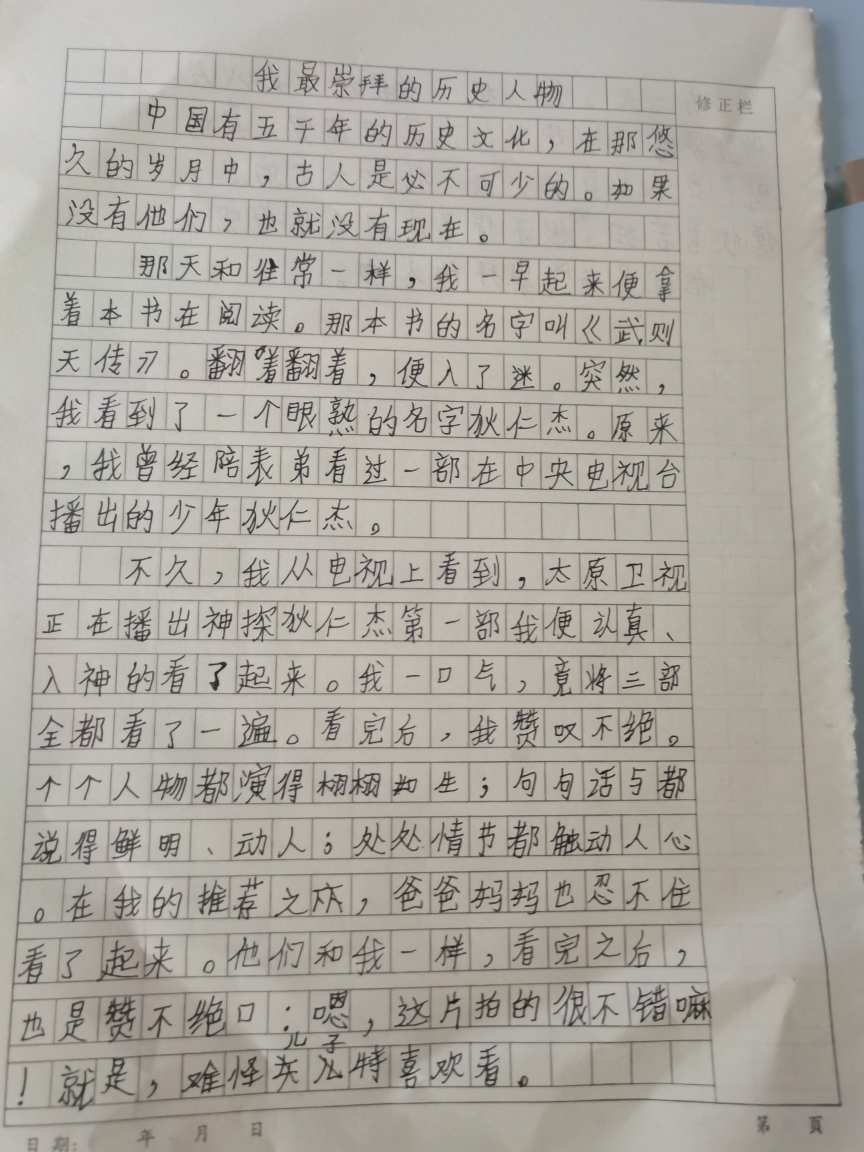 我最崇拜的历史人物
修正栏
中国有五千年的历史文化，在那悠
久的岁月中，古人是必不可少的。如果
没有他们，也就没有现在。
那天和往常一样，我一早起来便拿
着本书在阅读。那本书的名字叫《武则
天传》。翻着翻着，便入了迷。突然，
我看到了一个眼熟的名字狄仁杰。原来
，我曾经陪表弟看过一部在中央电视台
播出的少年狄仁杰。
不久，我从电视上看到，太原卫视
正在播出神探狄仁杰第一部我便认真、
入神的看了起来。我一口气，竟将三部
全都看了一遍。看完后，我赞叹不绝。
个个人物都演得栩栩如生；句句话与都
说得鲜明、动人；处处情节都触动人心
。在我的推荐之下，爸爸妈妈也忍不住
看了起来。他们和我一样，看完之后，
也是赞不绝口：嗯，这片拍的很不错嘛
儿子
！就是，难怪特喜欢看。
日期： 年 月 日
第 頁